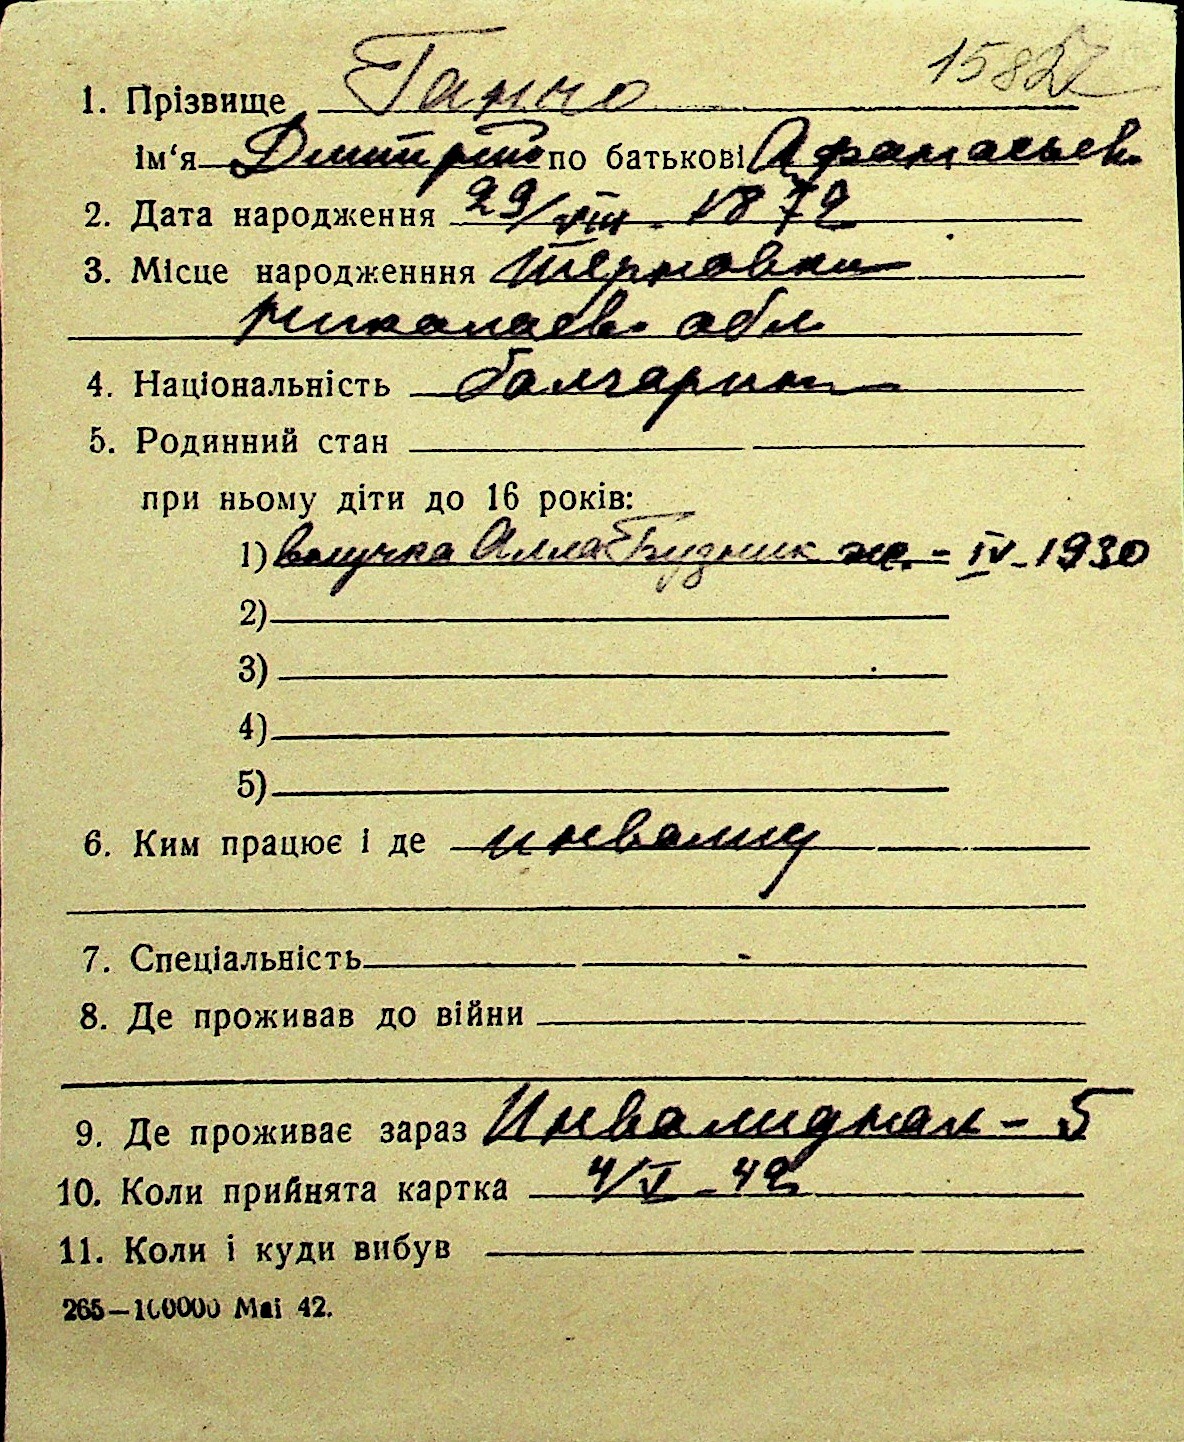 15827
1. Прізвище Ганчо
ім‘я Дмитрий по батькові Афанасьев.
2. Дата народження 29/VIII - 1872
3. Місце народженння Терновка
Николаев. обл
4. Національність болгарин
5. Родинний стан
при ньому діти до 16 років:
1) внучка Алла Будник ж. - IV - 1930
2)
3)
4)
5)
6. Ким працює і де инвалид
7. Спеціальність
8. Де проживав до війни
9. Де проживає зараз Инвалидная - 5
10. Коли прийнята картка 4/V - 42
11. Коли і куди вибув
265—100000 Маі 42.